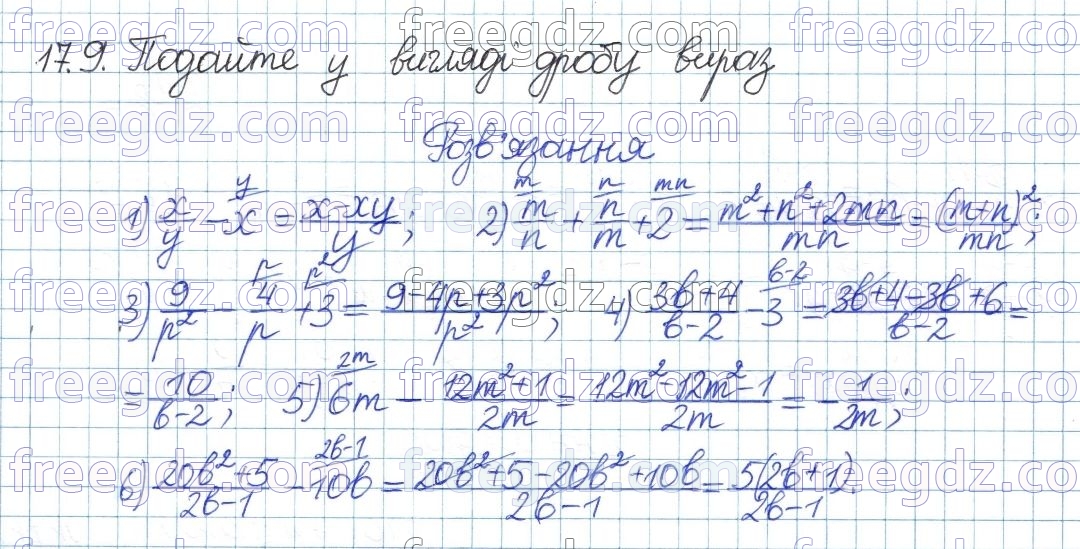 17.9. Подайте у вигляді дробу вираз
Розв'язання
1) x/y - x^{/y} = (x-xy)/y; 2) m^{/m}/n + n^{/n}/m + 2^{/mn} = (m²+n²+2mn)/mn = (m+n)²/mn;
3) 9/p² - 4^{/p}/p + 3^{/p²} = (9-4p+3p²)/p²; 4) (3b+4)/(b-2) - 3^{/b-2} = (3b+4-3b+6)/(b-2) =
= 10/(b-2); 5) 6m^{/2m} - (12m²+1)/2m = (12m²-12m²-1)/2m = -1/2m;
6) (20b²+5)/(2b-1) - 10b^{/2b-1} = (20b²+5-20b²+10b)/(2b-1) = 5(2b+1)/(2b-1).
freegdz.com freegdz.com freegdz.com